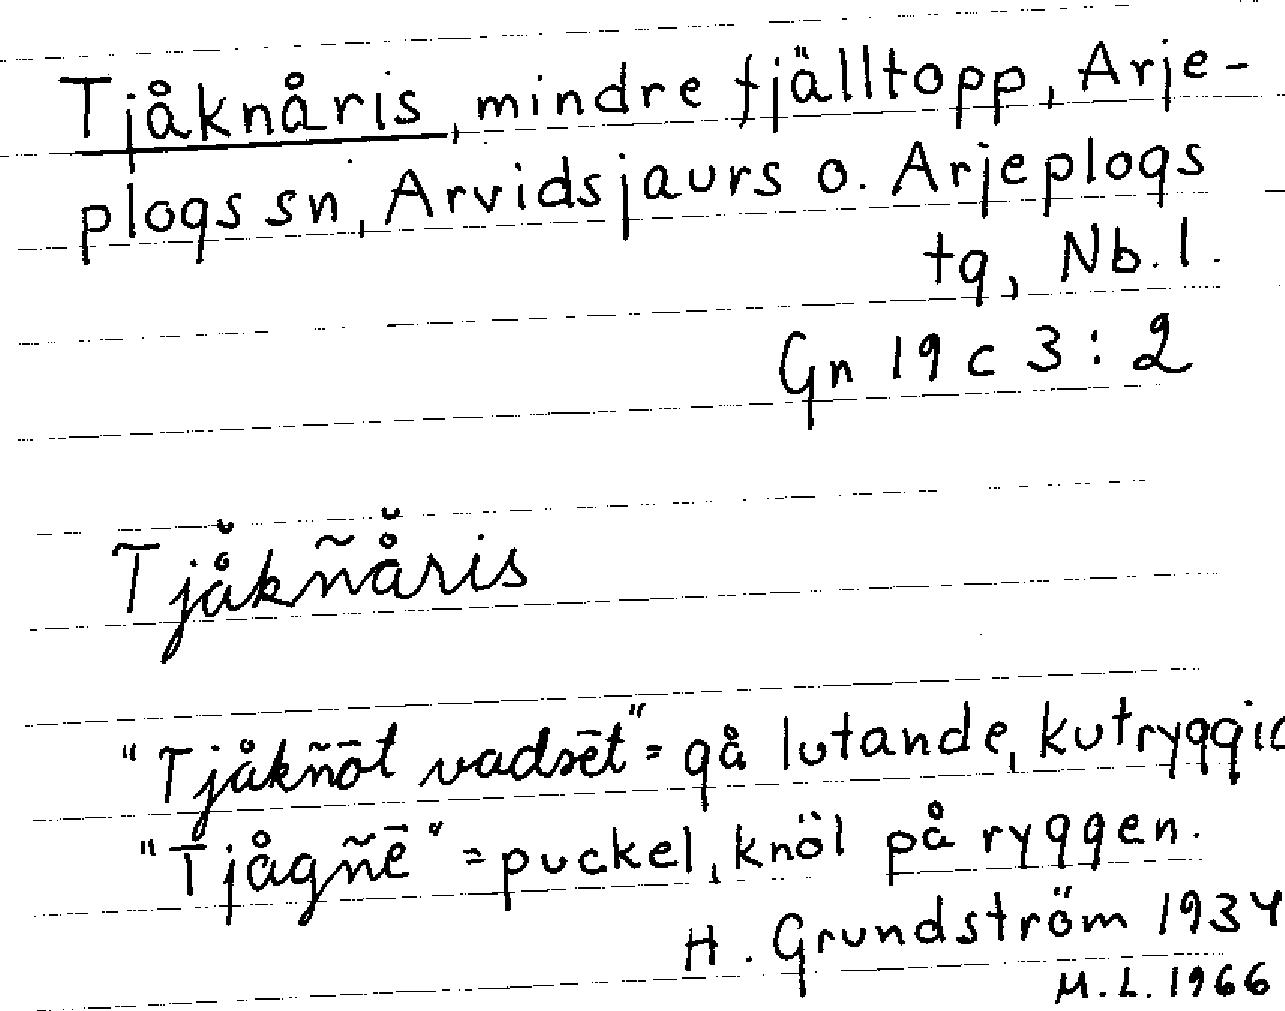 Tjåknåris, mindre fjälltopp, Arje-
plogs sn, Arvidsjaurs o. Arjeplogs
tg, Nb. l.
Gn 19 c 3 : 2
Tjå̆kñå̆ris
"Tjåkñōt vadsēt" = gå lutande, kutryggig
"Tjågñē" = puckel, knöl på ryggen.
H. Grundström 1934
M. L. 1966